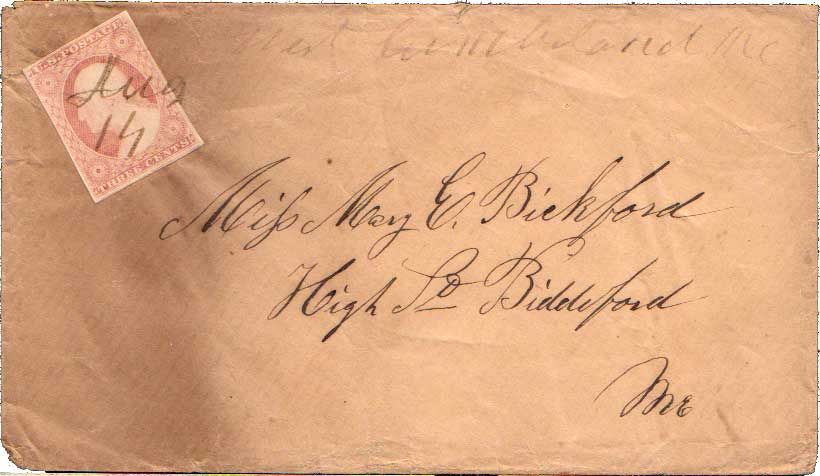 West Cumberland Me
U.S. POSTAGE
Aug
14
THREE CENTS
Miſs Mary E. Bickford
High St Biddeford
Me